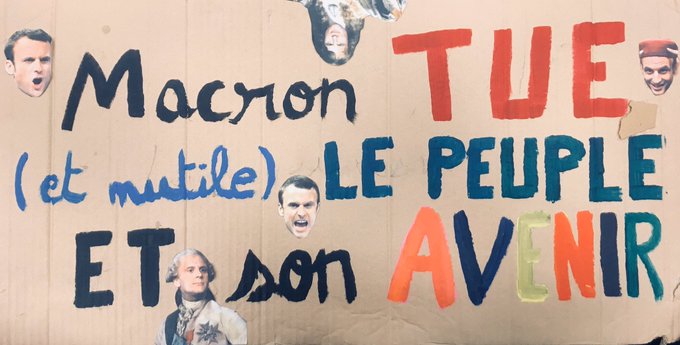 Macron TUE
(et mutile) LE PEUPLE
ET son AVENIR